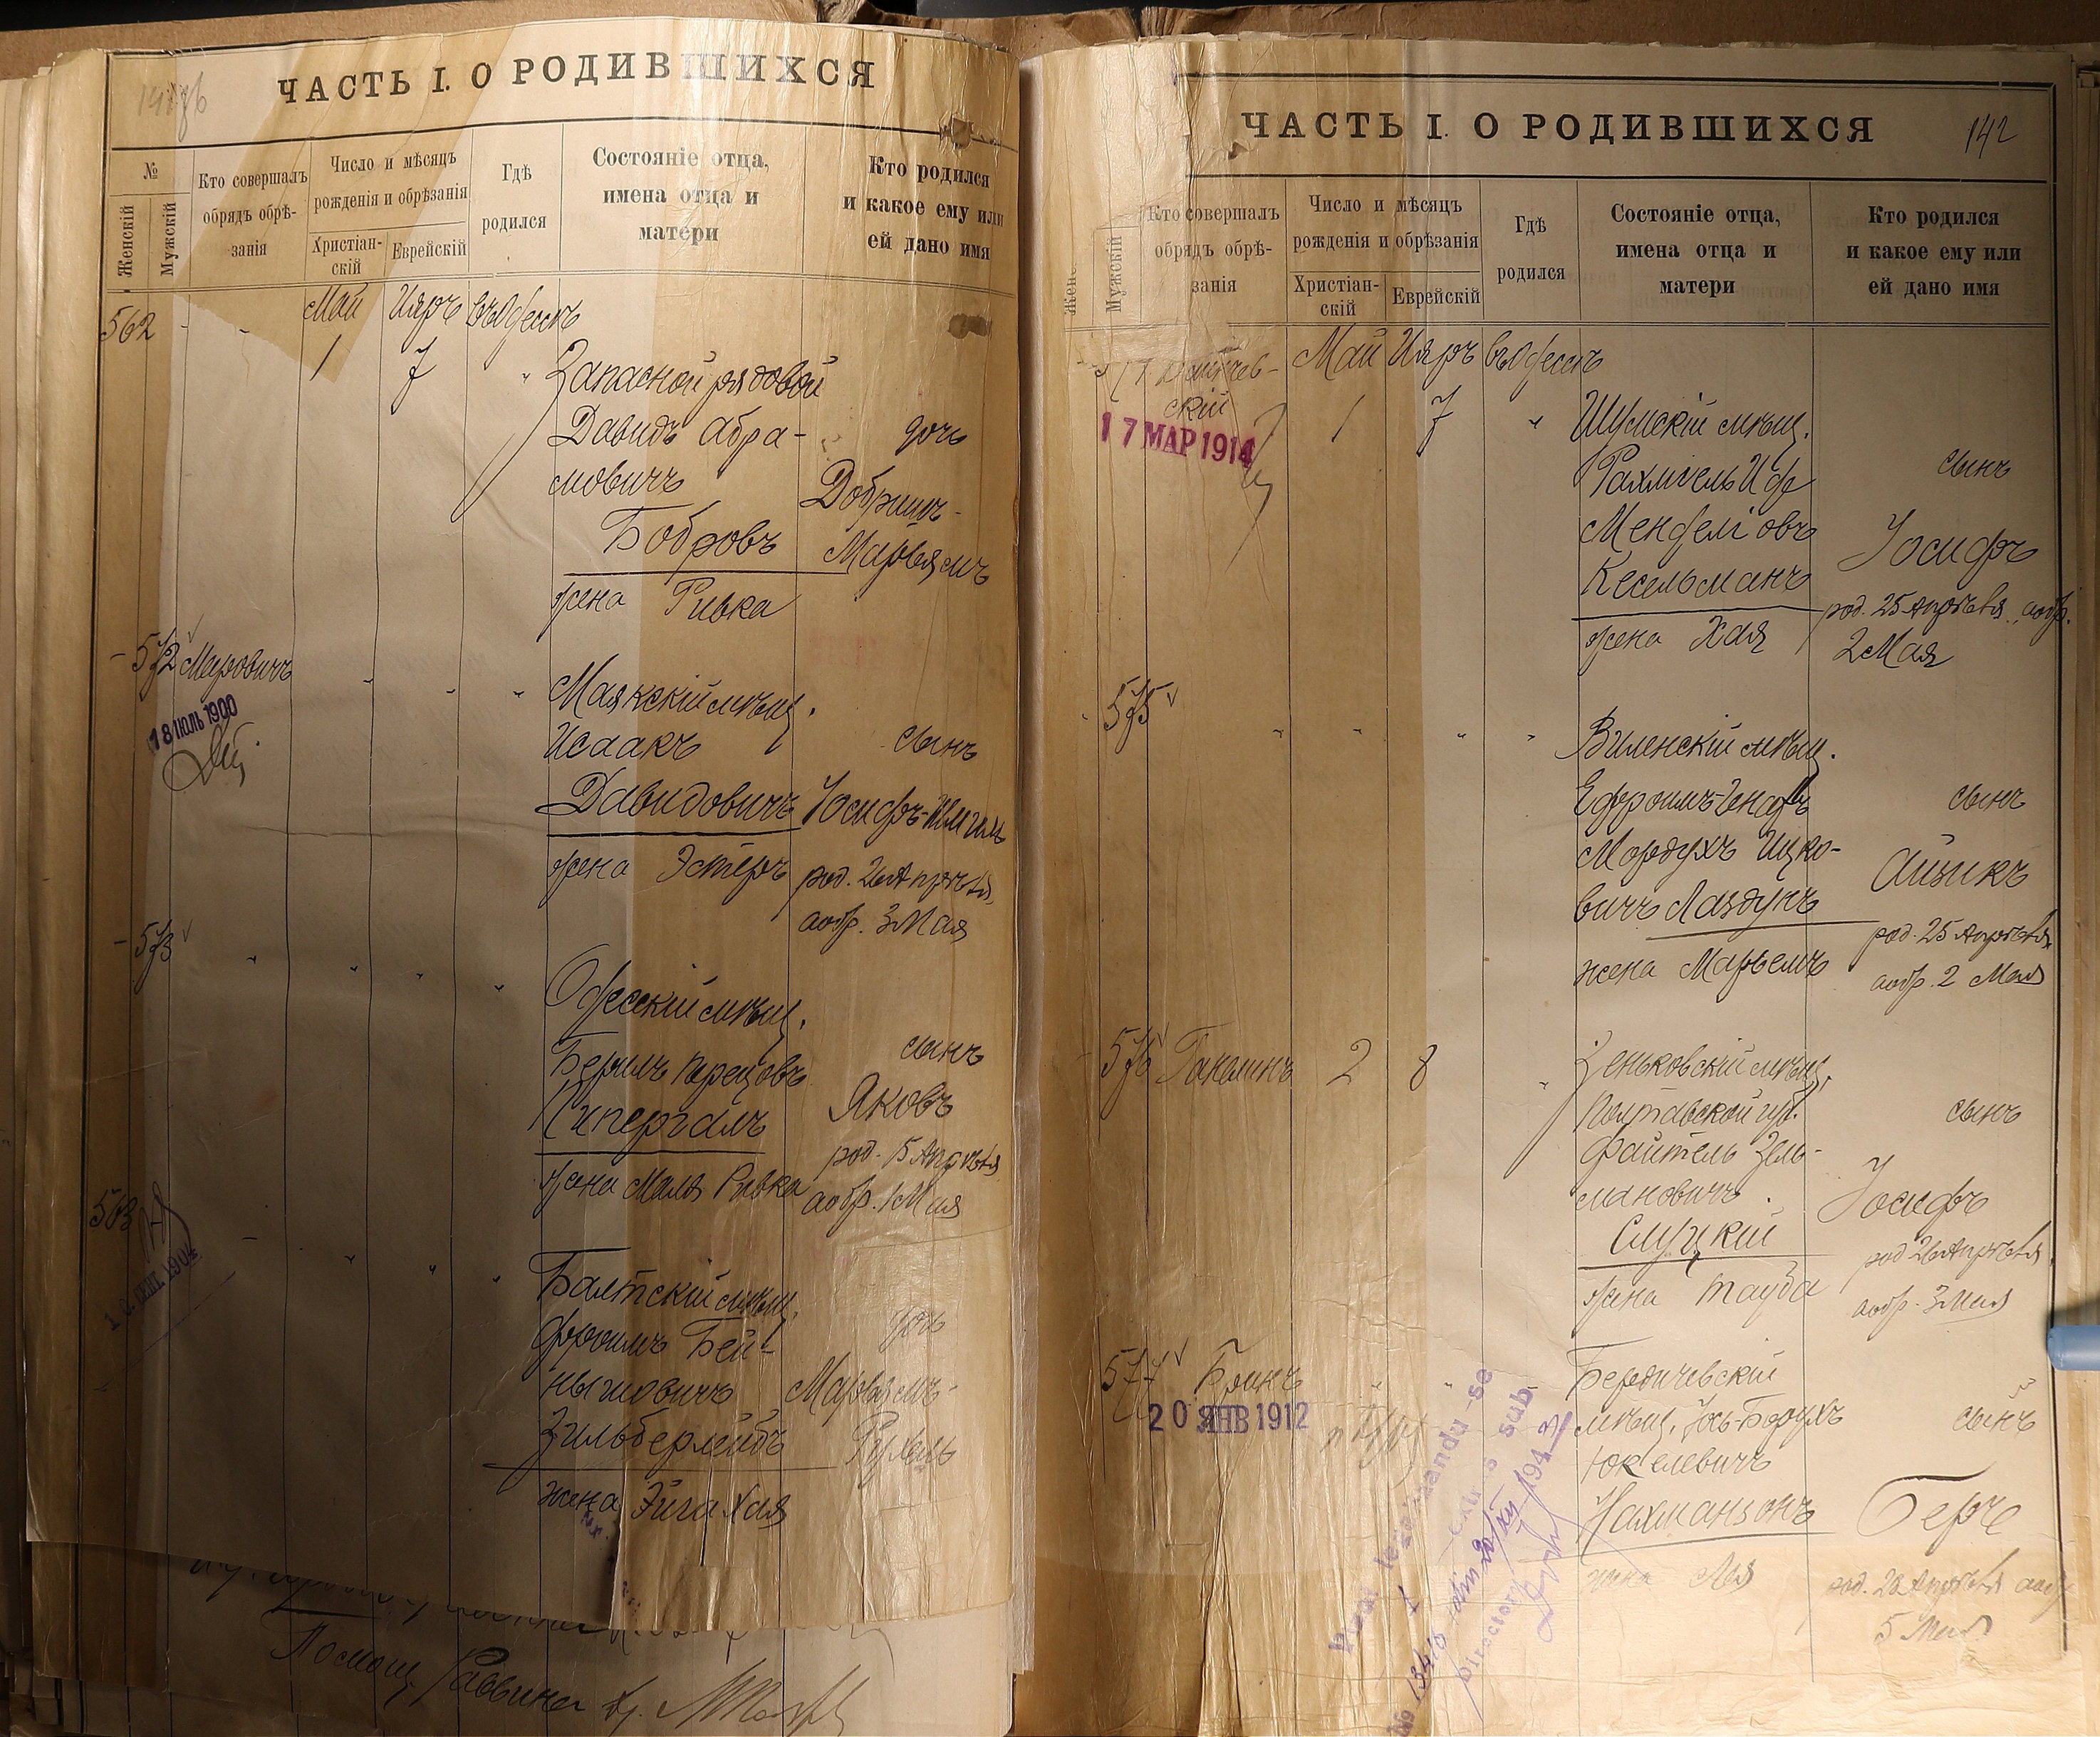 ЧАСТЬ I. О РОДИВШИХСЯ
№
Женскій
Мужскій
Кто совершалъ
обрядъ обрѣ-
занія
Число и мѣсяцъ
рожденія и обрѣзанія
Христіан-
скій
Еврейскій
Гдѣ
родился
Состояніе отца,
имена отца и
матери
Кто родился
и какое ему или
ей дано имя
562 Май Ияръ въ Одессѣ
1 7
Запасной рядовой
Давидъ Абра-
мовичъ
Бобровъ
жена Ривка
дочь
Добришъ-
Марьямъ
572 Меровичъ
18 ІЮЛЬ 1900
Маякскій мѣщ.
Исаакъ
Давидовичъ
жена Эстеръ
сынъ
Іосифъ-
род. 26 Апрѣля,
аобр. 3 Мая
573
Одесскій мѣщ.
Берилъ
жена Маля Ривка
сынъ
Яковъ
род. Апрѣля
аобр. 1 Мая
563
СЕНТ. 1904
Балтскій мѣщ.
Фроимъ Бей-
нышовичъ
Зильберлейбъ
жена Эйга Хая
дочь
Марьямъ-
Рухель
Помощ. Раввина
ЧАСТЬ I. О РОДИВШИХСЯ
142
Мужскій
Кто совершалъ
обрядъ обрѣ-
занія
Число и мѣсяцъ
рожденія и обрѣзанія
Христіан-
скій
Еврейскій
Гдѣ
родился
Состояніе отца,
имена отца и
матери
Кто родился
и какое ему или
ей дано имя
Май Ияръ въ Одессѣ
скій 1 7
17 МАР 1914
Шумскій мѣщ.
Рахмиель Иде
Менделіовъ
Кесельманъ
жена Хая
сынъ
Іосифъ
род. 25 Апрѣля, аобр.
2 Мая
575
Виленскій мѣщ.
Ефроимъ-
Мордухъ Ицко-
вичъ Лаздунъ
жена Марьемъ
сынъ
Айзикъ
род. 25 Апрѣля
аобр. 2 Мая
576 2 8
Зеньковскій мѣщ.
Полтавской губ.
Файтель Зель-
мановичъ
Слуцкій
жена Тауба
сынъ
Іосифъ
род. 26 Апрѣля
аобр. 3 Мая
577 Брикъ
20 ЯНВ 1912
Бердичевскій
мѣщ. Іось-Борухъ
Юкелевичъ
Нахмансонъ
жена Лея
сынъ
Беръ
род. 28 Апрѣля аобр
5 Мая